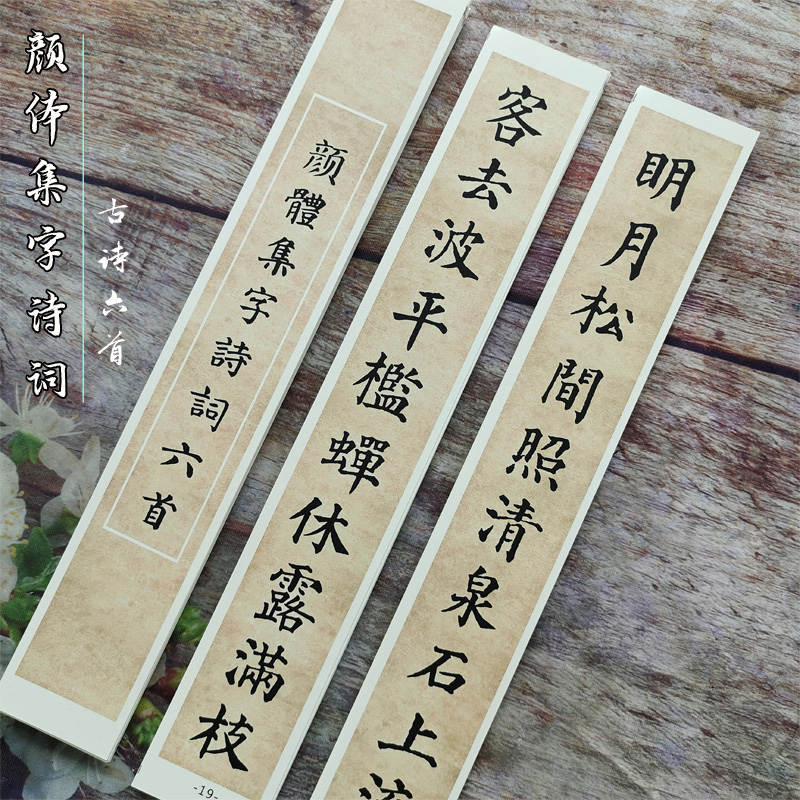 颜体集字诗词
古诗六首
顔體集字詩詞六首
客去波平檻蟬休露滿枝
-19-
明月松間照清泉石上流